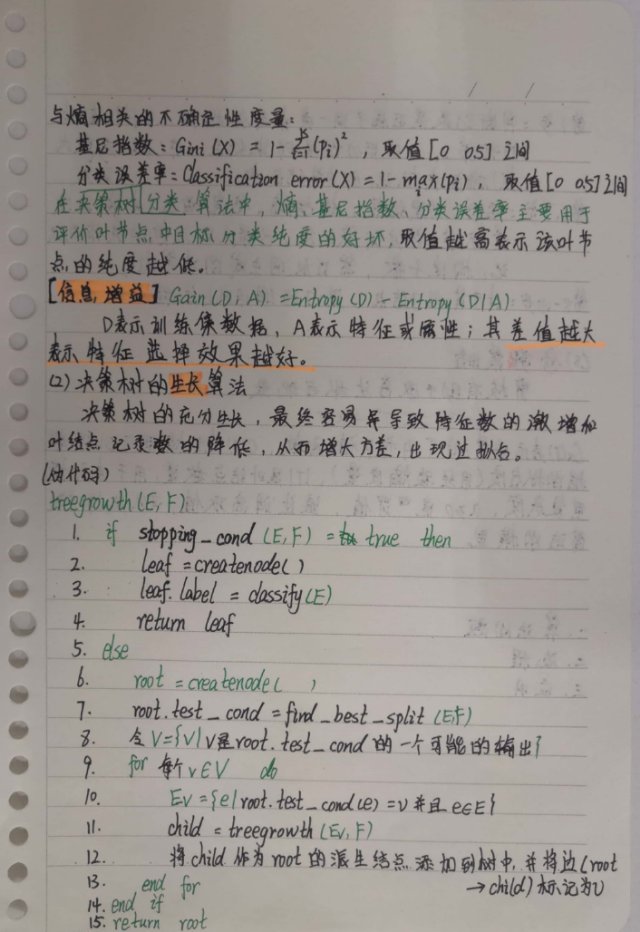 与熵相关的不确定性度量:
基尼指数: Gini (X) = 1-Σ(Pi)², 取值[0 0.5]之间
分类误差率: Classification error (X) = 1-max(Pi), 取值[0 0.5]之间
在决策树分类算法中, 熵、基尼指数、分类误差率主要用于
评价叶节点中目标分类纯度的好坏, 取值越高表示该叶节
点的纯度越低。
[信息增益] Gain (D, A) = Entropy (D) - Entropy (D|A)
D表示训练集数据, A表示特征或属性; 其差值越大
表示特征选择效果越好。
(2) 决策树的生长算法
决策树的充分生长, 最终容易导致特征数的激增和
叶结点记录数的降低, 从而增大方差, 出现过拟合。
(伪代码)
treegrowth (E, F)
1. if stopping_cond (E, F) = true then
2. leaf = createnode( )
3. leaf. label = classify (E)
4. return leaf
5. else
6. root = createnode( )
7. root. test_cond = find_best_split (E,F)
8. 令V={v|v是root. test_cond 的一个可能的输出}
9. for 每个 v∈V do
10. Ev = {e|root. test_cond(e) = v 并且 e∈E}
11. child = treegrowth (Ev, F)
12. 将child 作为root 的派生结点添加到树中, 并将边(root
→ child) 标记为v
13. end for
14. end if
15. return root